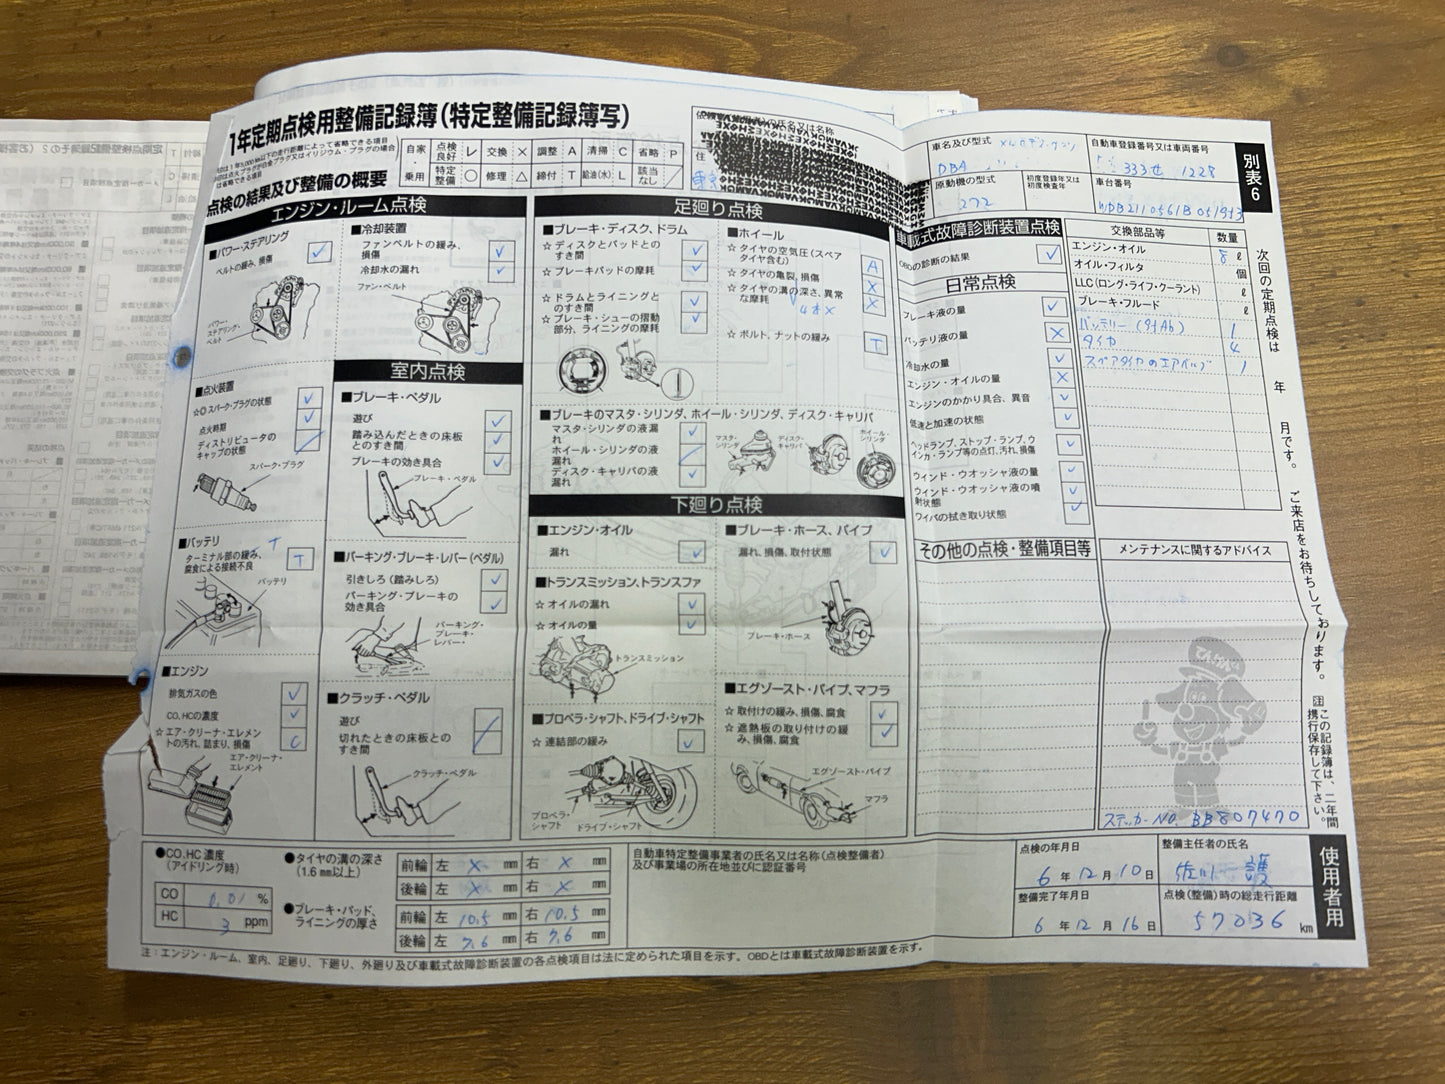 1年定期点検用整備記録簿(特定整備記録簿写)
自家・乗用
点検良好 レ 交換 × 調整 A 清掃 C 省略 P
特定整備 ○ 修理 △ 締付 T 給油(水) L 該当なし /
点検の結果及び整備の概要
住
車名及び型式
DBA
自動車登録番号又は車両番号
333せ 1228
原動機の型式
272
初度登録年又は初度検査年
車台番号
別表6
エンジン・ルーム点検
■パワー・ステアリング
ベルトの緩み、損傷 レ
パワー・ステアリング・ベルト
■冷却装置
ファンベルトの緩み、損傷 レ
冷却水の漏れ レ
ファン・ベルト
■点火装置
☆◎スパーク・プラグの状態 レ
点火時期 レ
ディストリビュータのキャップの状態 /
スパーク・プラグ
■バッテリ T
ターミナル部の緩み、腐食による接続不良 T
バッテリ
■エンジン
排気ガスの色 レ
CO、HCの濃度 レ
☆エア・クリーナ・エレメントの汚れ、詰まり、損傷 C
エア・クリーナ・エレメント
室内点検
■ブレーキ・ペダル
遊び レ
踏み込んだときの床板とのすき間 レ
ブレーキの効き具合 レ
ブレーキ・ペダル
■パーキング・ブレーキ・レバー(ペダル)
引きしろ(踏みしろ) レ
パーキング・ブレーキの効き具合 レ
パーキング・ブレーキ・レバー・
■クラッチ・ペダル
遊び
切れたときの床板とのすき間 /
クラッチ・ペダル
足廻り点検
■ブレーキ・ディスク、ドラム
☆ディスクとパッドとのすき間 レ
☆ブレーキパッドの摩耗 レ
☆ドラムとライニングとのすき間 レ
☆ブレーキ・シューの摺動部分、ライニングの摩耗 レ
■ホイール
☆タイヤの空気圧(スペアタイヤ含む) A
☆タイヤの亀裂、損傷 ×
☆タイヤの溝の深さ、異常な摩耗 ×
4本×
☆ボルト、ナットの緩み T
■ブレーキのマスタ・シリンダ、ホイール・シリンダ、ディスク・キャリパ
マスタ・シリンダの液漏れ レ
ホイール・シリンダの液漏れ /
ディスク・キャリパの液漏れ レ
マスタ・シリンダ
ディスク・キャリパ
ホイール・シリンダ
下廻り点検
■エンジン・オイル
漏れ レ
■トランスミッション、トランスファ
☆オイルの漏れ レ
☆オイルの量 レ
トランスミッション
■プロペラ・シャフト、ドライブ・シャフト
☆連結部の緩み レ
プロペラ・シャフト
ドライブ・シャフト
■ブレーキ・ホース、パイプ
漏れ、損傷、取付状態 レ
ブレーキ・ホース
■エグゾースト・パイプ、マフラ
☆取付けの緩み、損傷、腐食 レ
☆遮熱板の取り付けの緩み、損傷、腐食 レ
エグゾースト・パイプ
マフラ
車載式故障診断装置点検
OBDの診断の結果 レ
日常点検
ブレーキ液の量 レ
バッテリ液の量 ×
冷却水の量 レ
エンジン・オイルの量 ×
エンジンのかかり具合、異音 レ
低速と加速の状態 レ
ヘッドランプ、ストップ・ランプ、ウインカ・ランプ等の点灯、汚れ、損傷 レ
ウインド・ウオッシャ液の量 レ
ウインド・ウオッシャ液の噴射状態 レ
ワイパの拭き取り状態 レ
その他の点検・整備項目等
交換部品等 数量
エンジン・オイル 8 ℓ
オイル・フィルタ 個
LLC(ロング・ライフ・クーラント) ℓ
ブレーキ・フルード ℓ
バッテリー 1
タイヤ 4
スペアタイヤのエアバルブ 1
メンテナンスに関するアドバイス
てんけんくん
ステッカーNO. BB807470
次回の定期点検は 年 月です。 ご来店をお待ちしております。
注 この記録簿は、二年間携行保存して下さい。
●CO、HC濃度(アイドリング時)
CO 0.01 %
HC 3 ppm
●タイヤの溝の深さ(1.6mm以上)
前輪 左 × mm 右 × mm
後輪 左 × mm 右 × mm
●ブレーキ・パッド、ライニングの厚さ
前輪 左 10.5 mm 右 10.5 mm
後輪 左 7.6 mm 右 7.6 mm
自動車特定整備事業者の氏名又は名称(点検整備者)及び事業場の所在地並びに認証番号
点検の年月日
6年12月10日
整備完了年月日
6年12月16日
整備主任者の氏名
点検(整備)時の総走行距離
57036 km
使用者用
注:エンジン・ルーム、室内、足廻り、下廻り、外廻り及び車載式故障診断装置の各点検項目は法に定められた項目を示す。OBDとは車載式故障診断装置を示す。